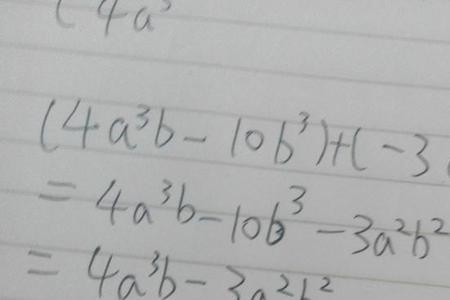 (4a³
(4a³b - 10b³)+(-3
= 4a³b - 10b³ - 3a²b²
= 4a³b - 3a²b²